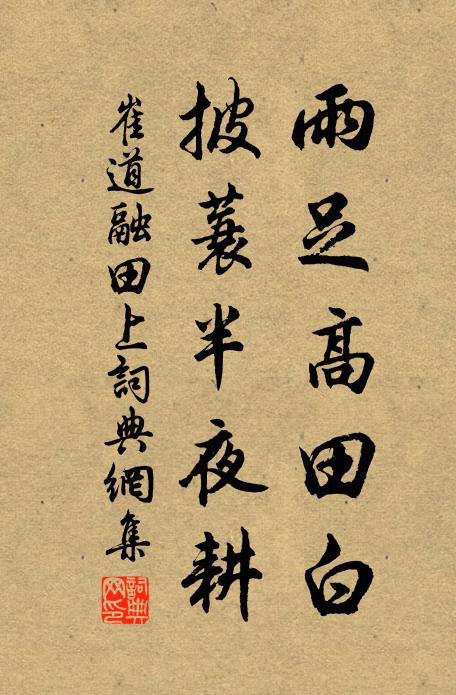 雨足高田白
披蓑半夜耕
崔道融田上詞典網集
詞典網印